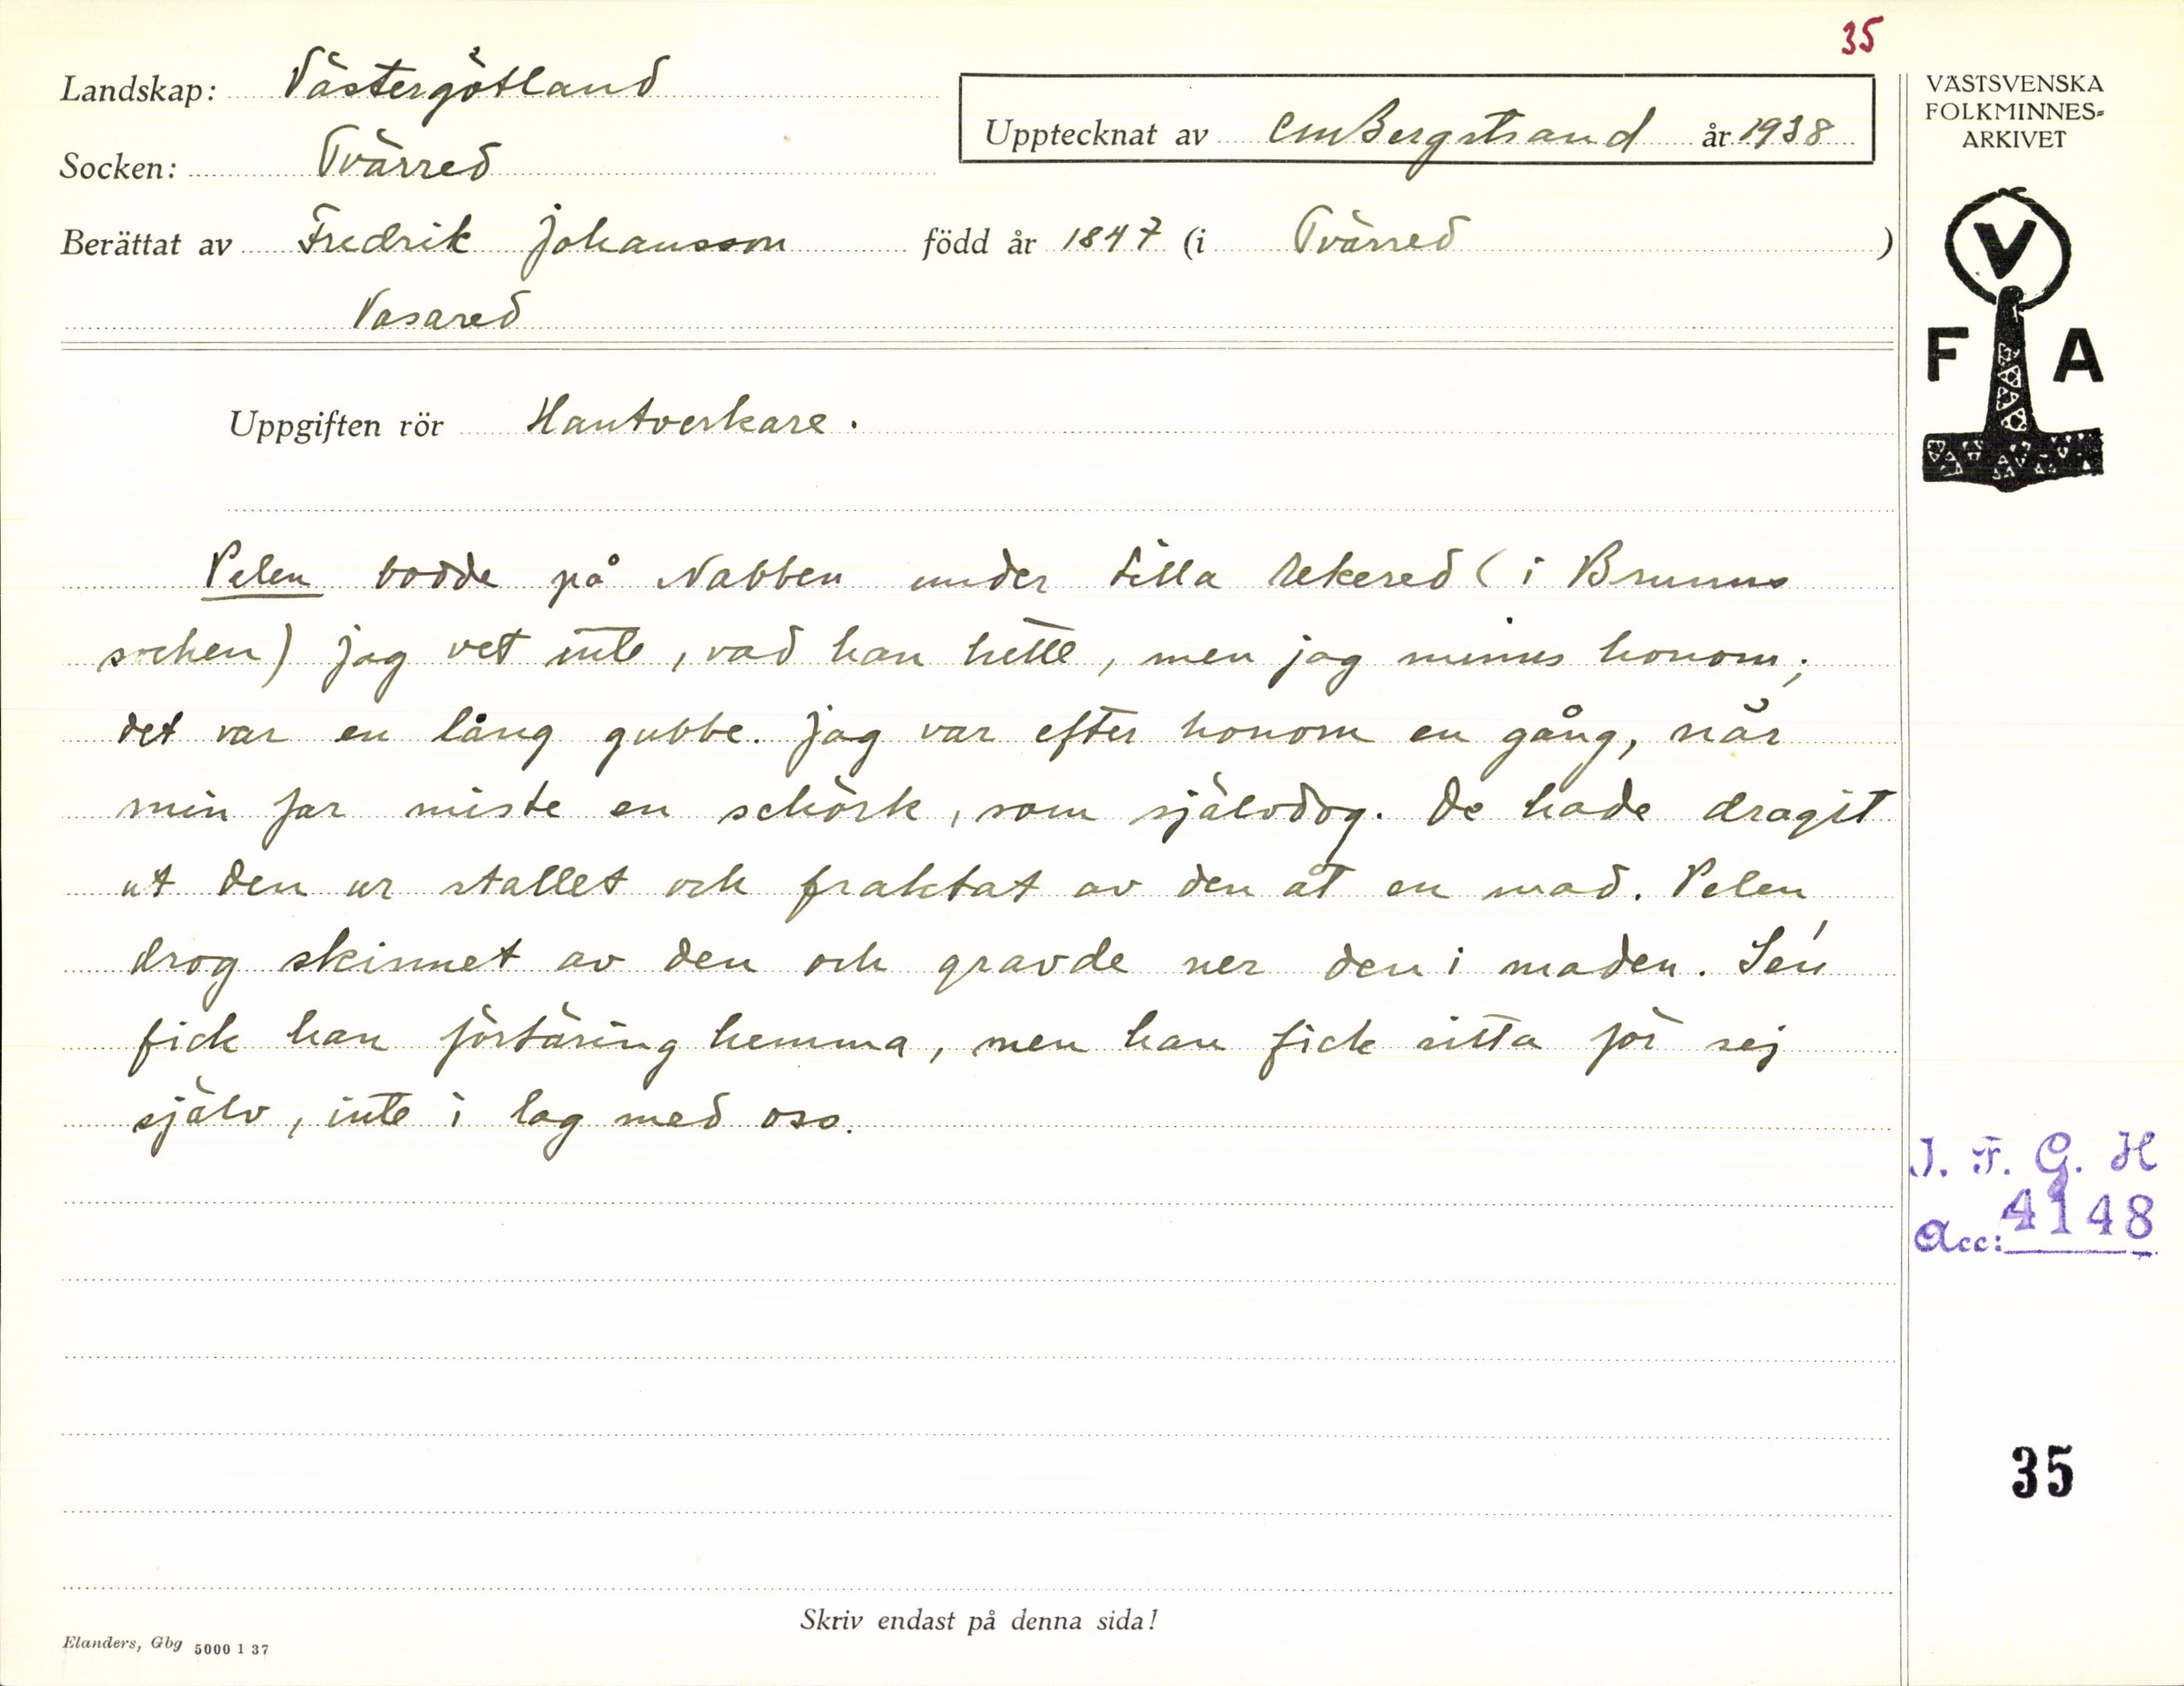 35
Landskap: Västergötland
Upptecknat av CMBergstrand år 1938
Socken: Tvärred
Berättat av Fredrik Johansson född år 1847 (i Tvärred)
Vasared
VÄSTSVENSKA
FOLKMINNES-
ARKIVET
V
F A
Uppgiften rör Hantverkare.
Pelen bodde på Nabben under Lilla Rekered (i Brunns
socken) jag vet inte, vad han hette, men jag minns honom;
det var en lång gubbe. Jag var efter honom en gång, när
min far miste en schörk, som självdog. De hade dragit
ut den ur stallet och fraktat av den åt en mad. Pelen
drog skinnet av den och gravde ner den i maden. Sen
fick han förtäring hemma, men han fick sitta för sej
själv, inte i lag med oss.
I. F. G. H
Acc: 4148
35
Skriv endast på denna sida!
Elanders, Gbg 5000 1 37